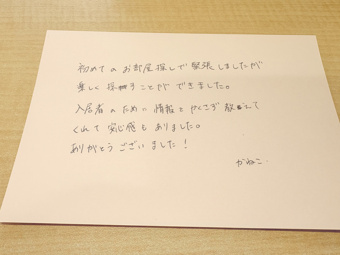 初めてのお部屋探しで緊張しましたが
楽しく探すことができました。
入居者のために情報をかくさず教えて
くれて安心感もありました。
ありがとうございました!
かねこ